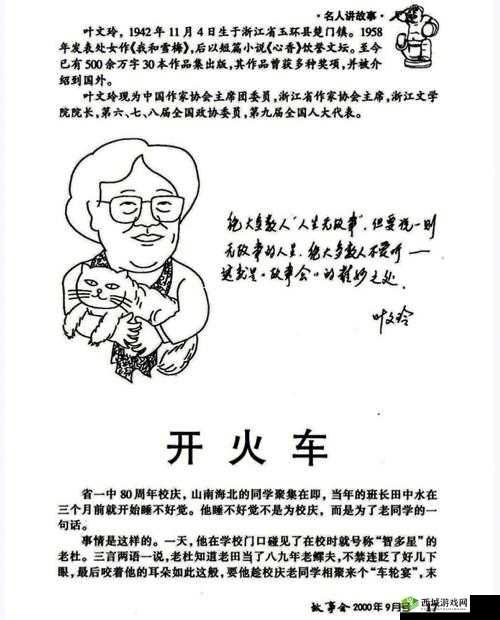 ·名人讲故事·
叶文玲，1942年11月4日生于浙江省玉环县楚门镇。1958
年发表处女作《我和雪梅》，后以短篇小说《心香》饮誉文坛。至今
已有500余万字30本作品集出版，其作品曾获多种奖项，并被介
绍到国外。
叶文玲现为中国作家协会主席团委员，浙江省作家协会主席，浙江文学
院院长，第六、七、八届全国政协委员，第九届全国人大代表。
绝大多数人“人生无故事”，但要说一则
无故事的人生，绝大多数人不爱听——
这就是《故事会》的精妙之处。
叶文玲
开火车
省一中80周年校庆，山南海北的同学聚集在即，当年的班长田中水在
三个月前就开始睡不好觉。他睡不好觉不是为校庆，而是为了老同学的一
句话。
事情是这样的。一天，他在学校门口碰见了在校时就号称“智多星”的
老杜。三言两语一说，老杜知道老田当了八九年老鳏夫，不禁连眨了好几下
眼，最后咬着他的耳朵如此这般，要他趁校庆老同学相聚来个“车轮宴”，末
故事会 2000年9月号 17
西城游戏网